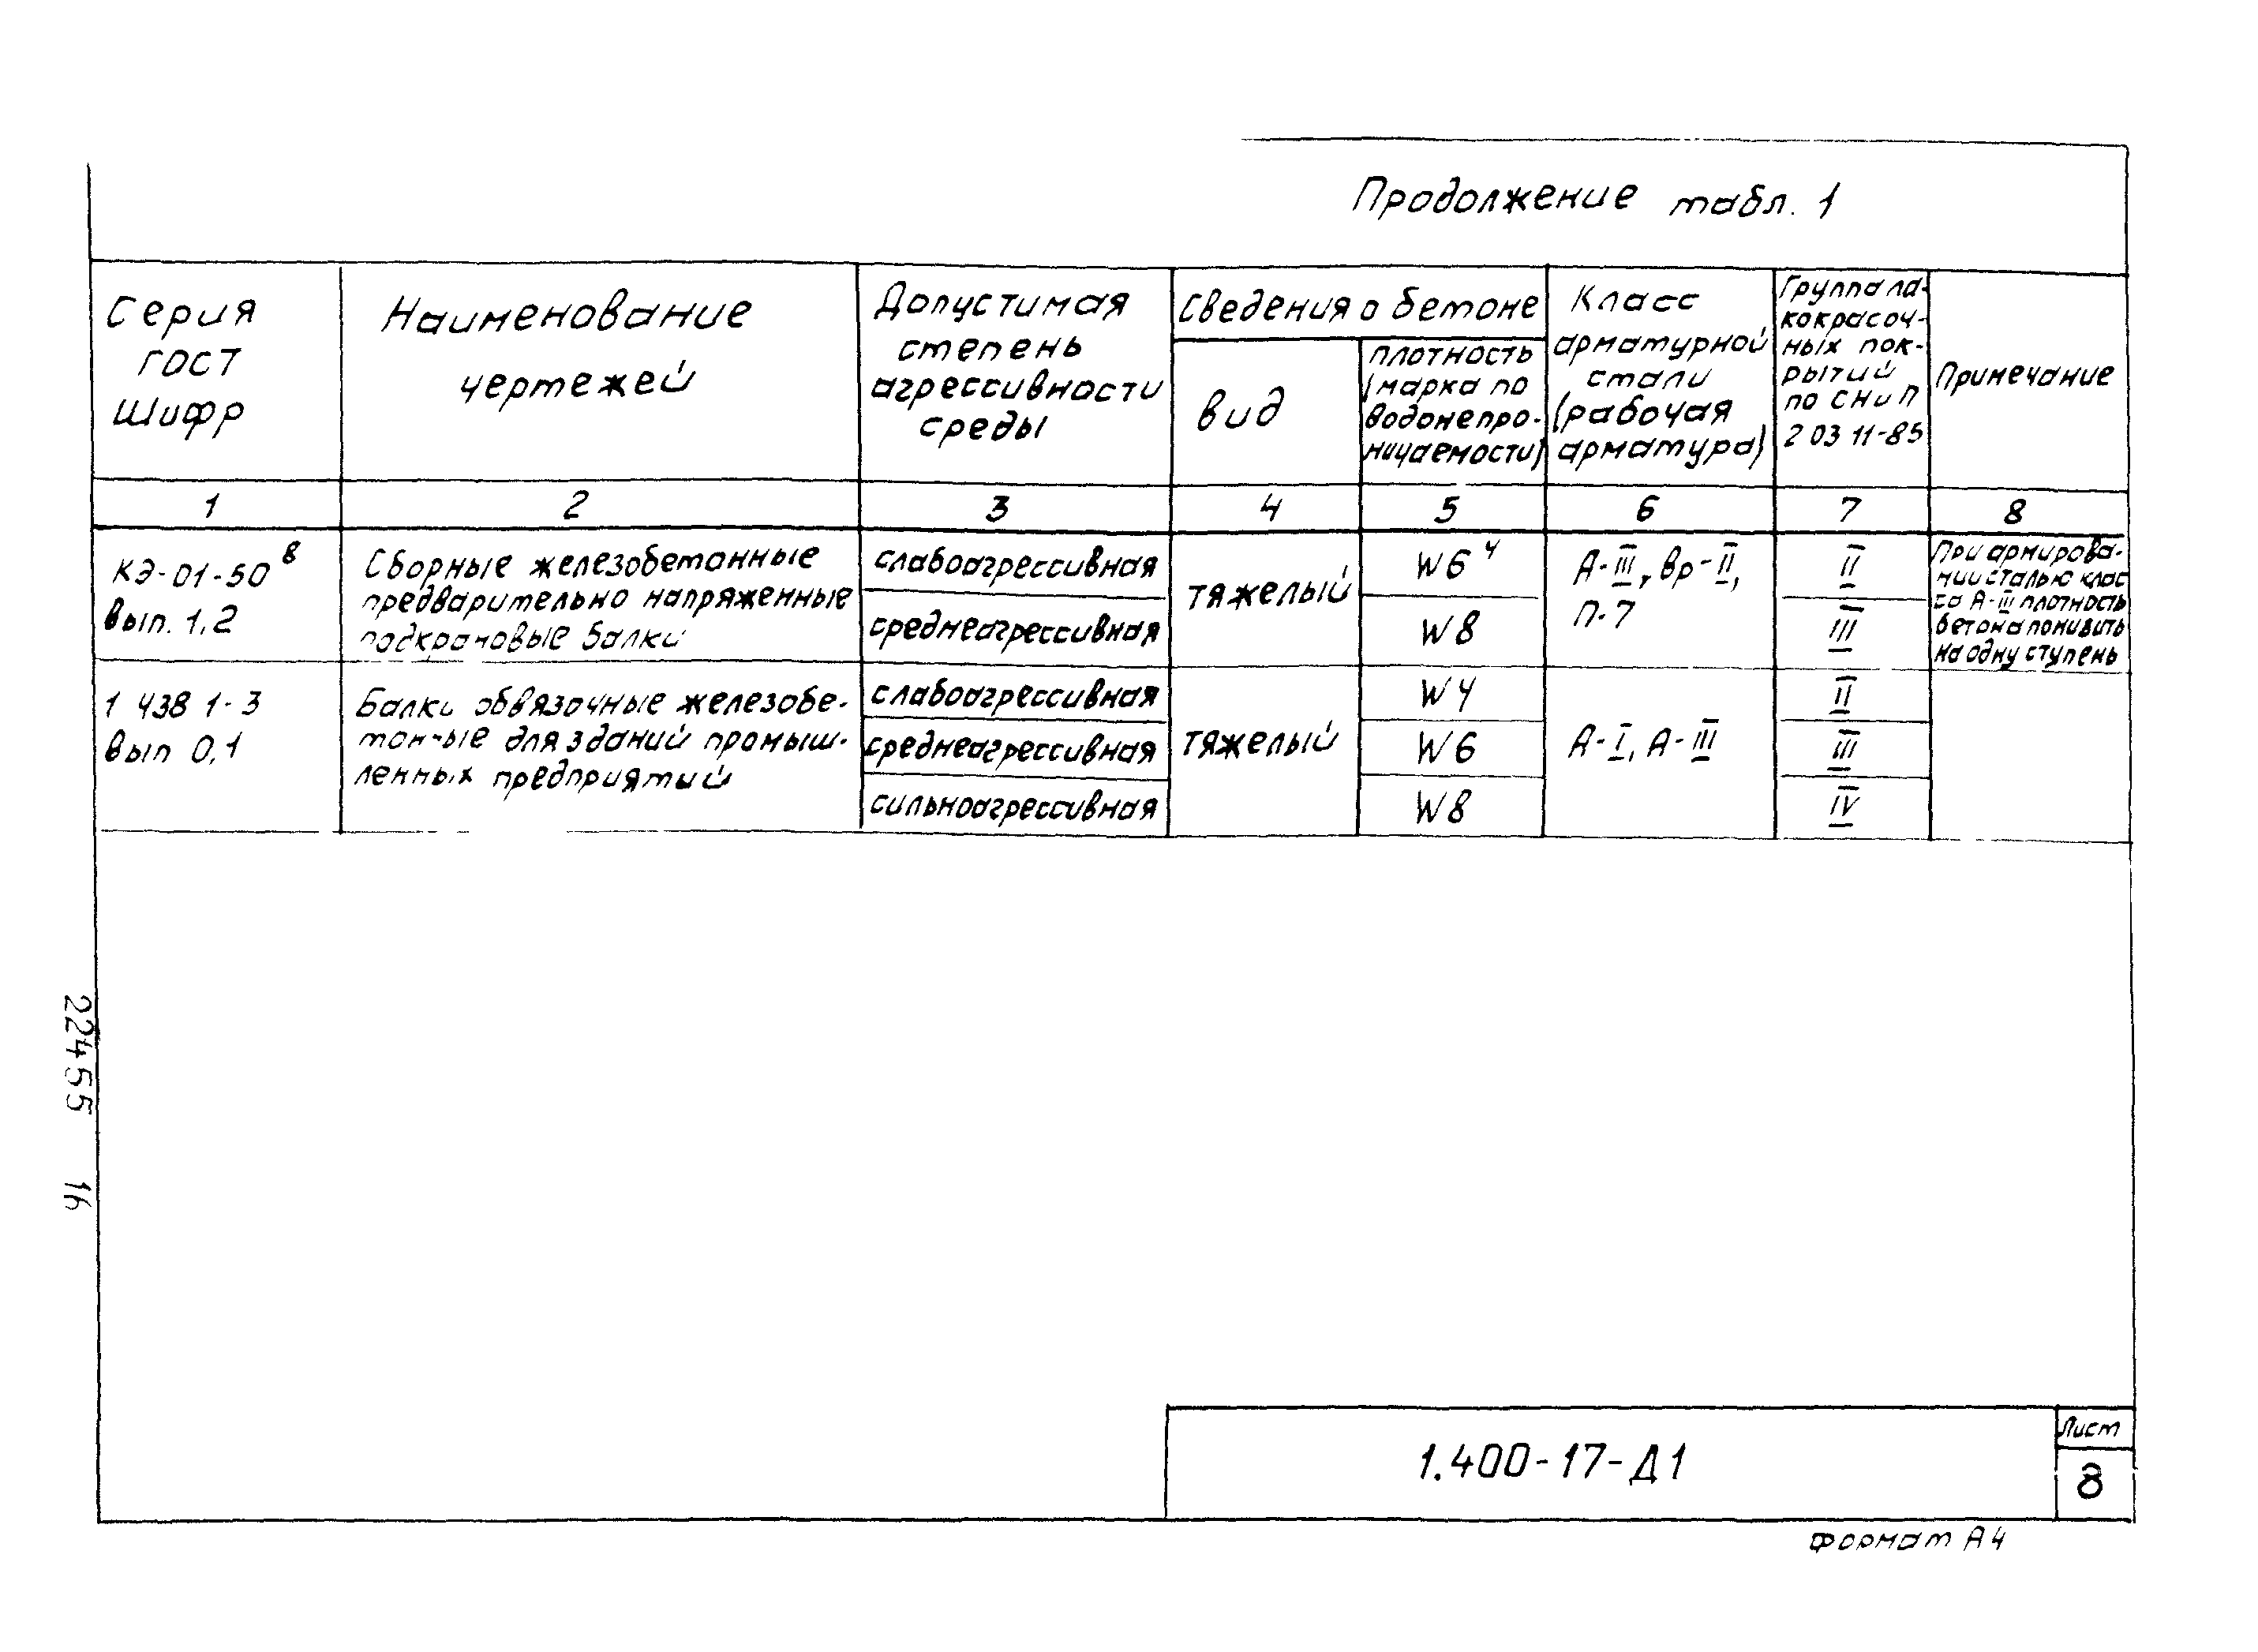 Продолжение табл. 1
Серия
ГОСТ
Шифр
Наименование
чертежей
Допустимая
степень
агрессивности
среды
Сведения о бетоне
вид
плотность
(марка по
водонепро-
ницаемости)
Класс
арматурной
стали
(рабочая
арматура)
Группа ла-
кокрасоч-
ных пок-
рытий
по СНиП
2 03 11-85
Примечание
1 2 3 4 5 6 7 8
КЭ-01-50 8
Вып. 1,2
Сборные железобетонные
предварительно напряженные
подкрановые балки
слабоагрессивная
среднеагрессивная
тяжелый
W6 4
W8
А-III, Вр-II,
П-7
II
III
При армирова-
нии сталью клас
са А-III плотность
бетона понизить
на одну ступень
1 438 1-3
Вып 0,1
Балки обвязочные железобе-
тонные для зданий промыш-
ленных предприятий
слабоагрессивная
среднеагрессивная
сильноагрессивная
тяжелый
W4
W6
W8
А-I, А-III
II
III
IV
22455 16
1.400-17-Д1
Лист
8
Формат А4